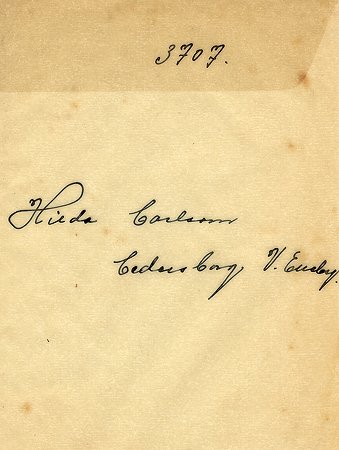 3707.
Hilda Carlsson
Cedersborg, V. Eneby.